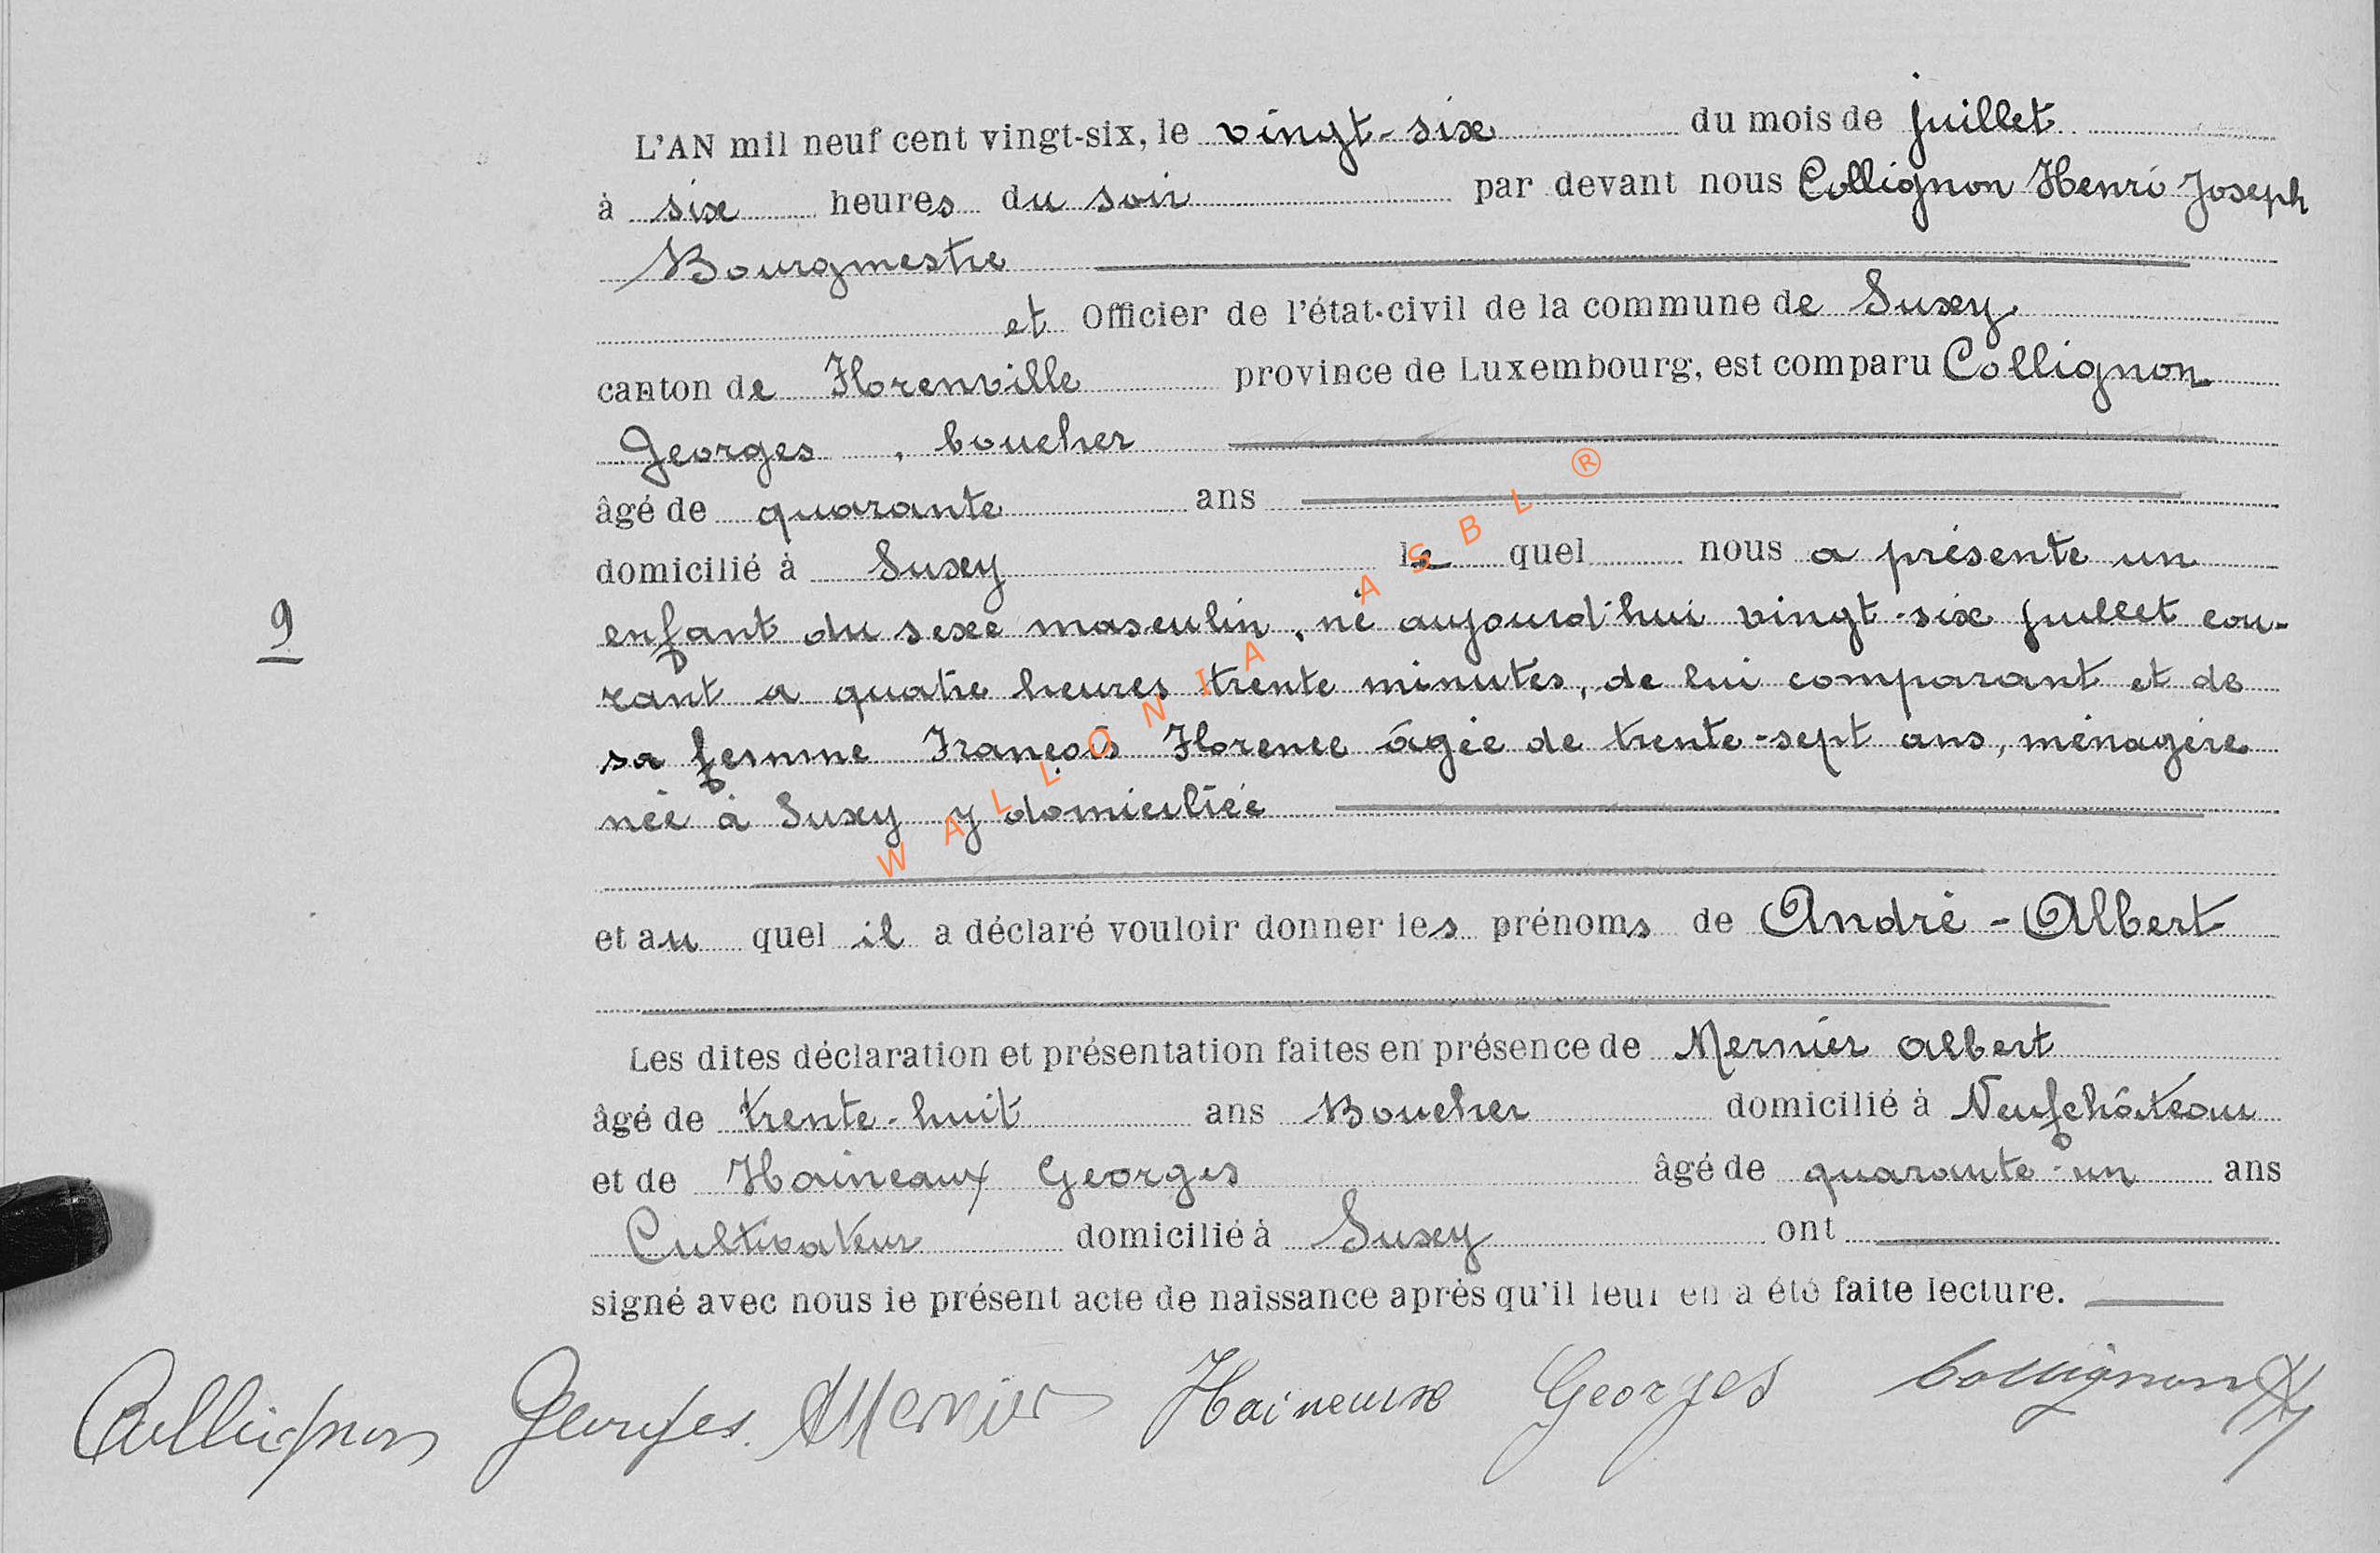 L'AN mil neuf cent vingt-six, le vingt-six du mois de juillet
à six heures du soir par devant nous Collignon Henri Joseph
Bourgmestre
et Officier de l'état-civil de la commune de Suxy
canton de Florenville province de Luxembourg, est comparu Collignon
Georges, boucher
âgé de quarante ans
domicilié à Suxy lequel nous a présenté un
9
enfant du sexe masculin, né aujourd'hui vingt-six juillet cou-
rant à quatre heures trente minutes, de lui comparant et de
sa femme François Florence âgée de trente-sept ans, ménagère
née à Suxy y domiciliée
et au quel il a déclaré vouloir donner les prénoms de André-Albert
Les dites déclaration et présentation faites en présence de Mernier Albert
âgé de trente-huit ans Boucher domicilié à Neufchâteau
et de Haineaux Georges âgé de quarante-un ans
Cultivateur domicilié à Suxy ont
signé avec nous le présent acte de naissance après qu'il leur en a été faite lecture.
Collignon Georges. A Mernier Haineaux Georges Collignon H
WALLONIA ASBL ®